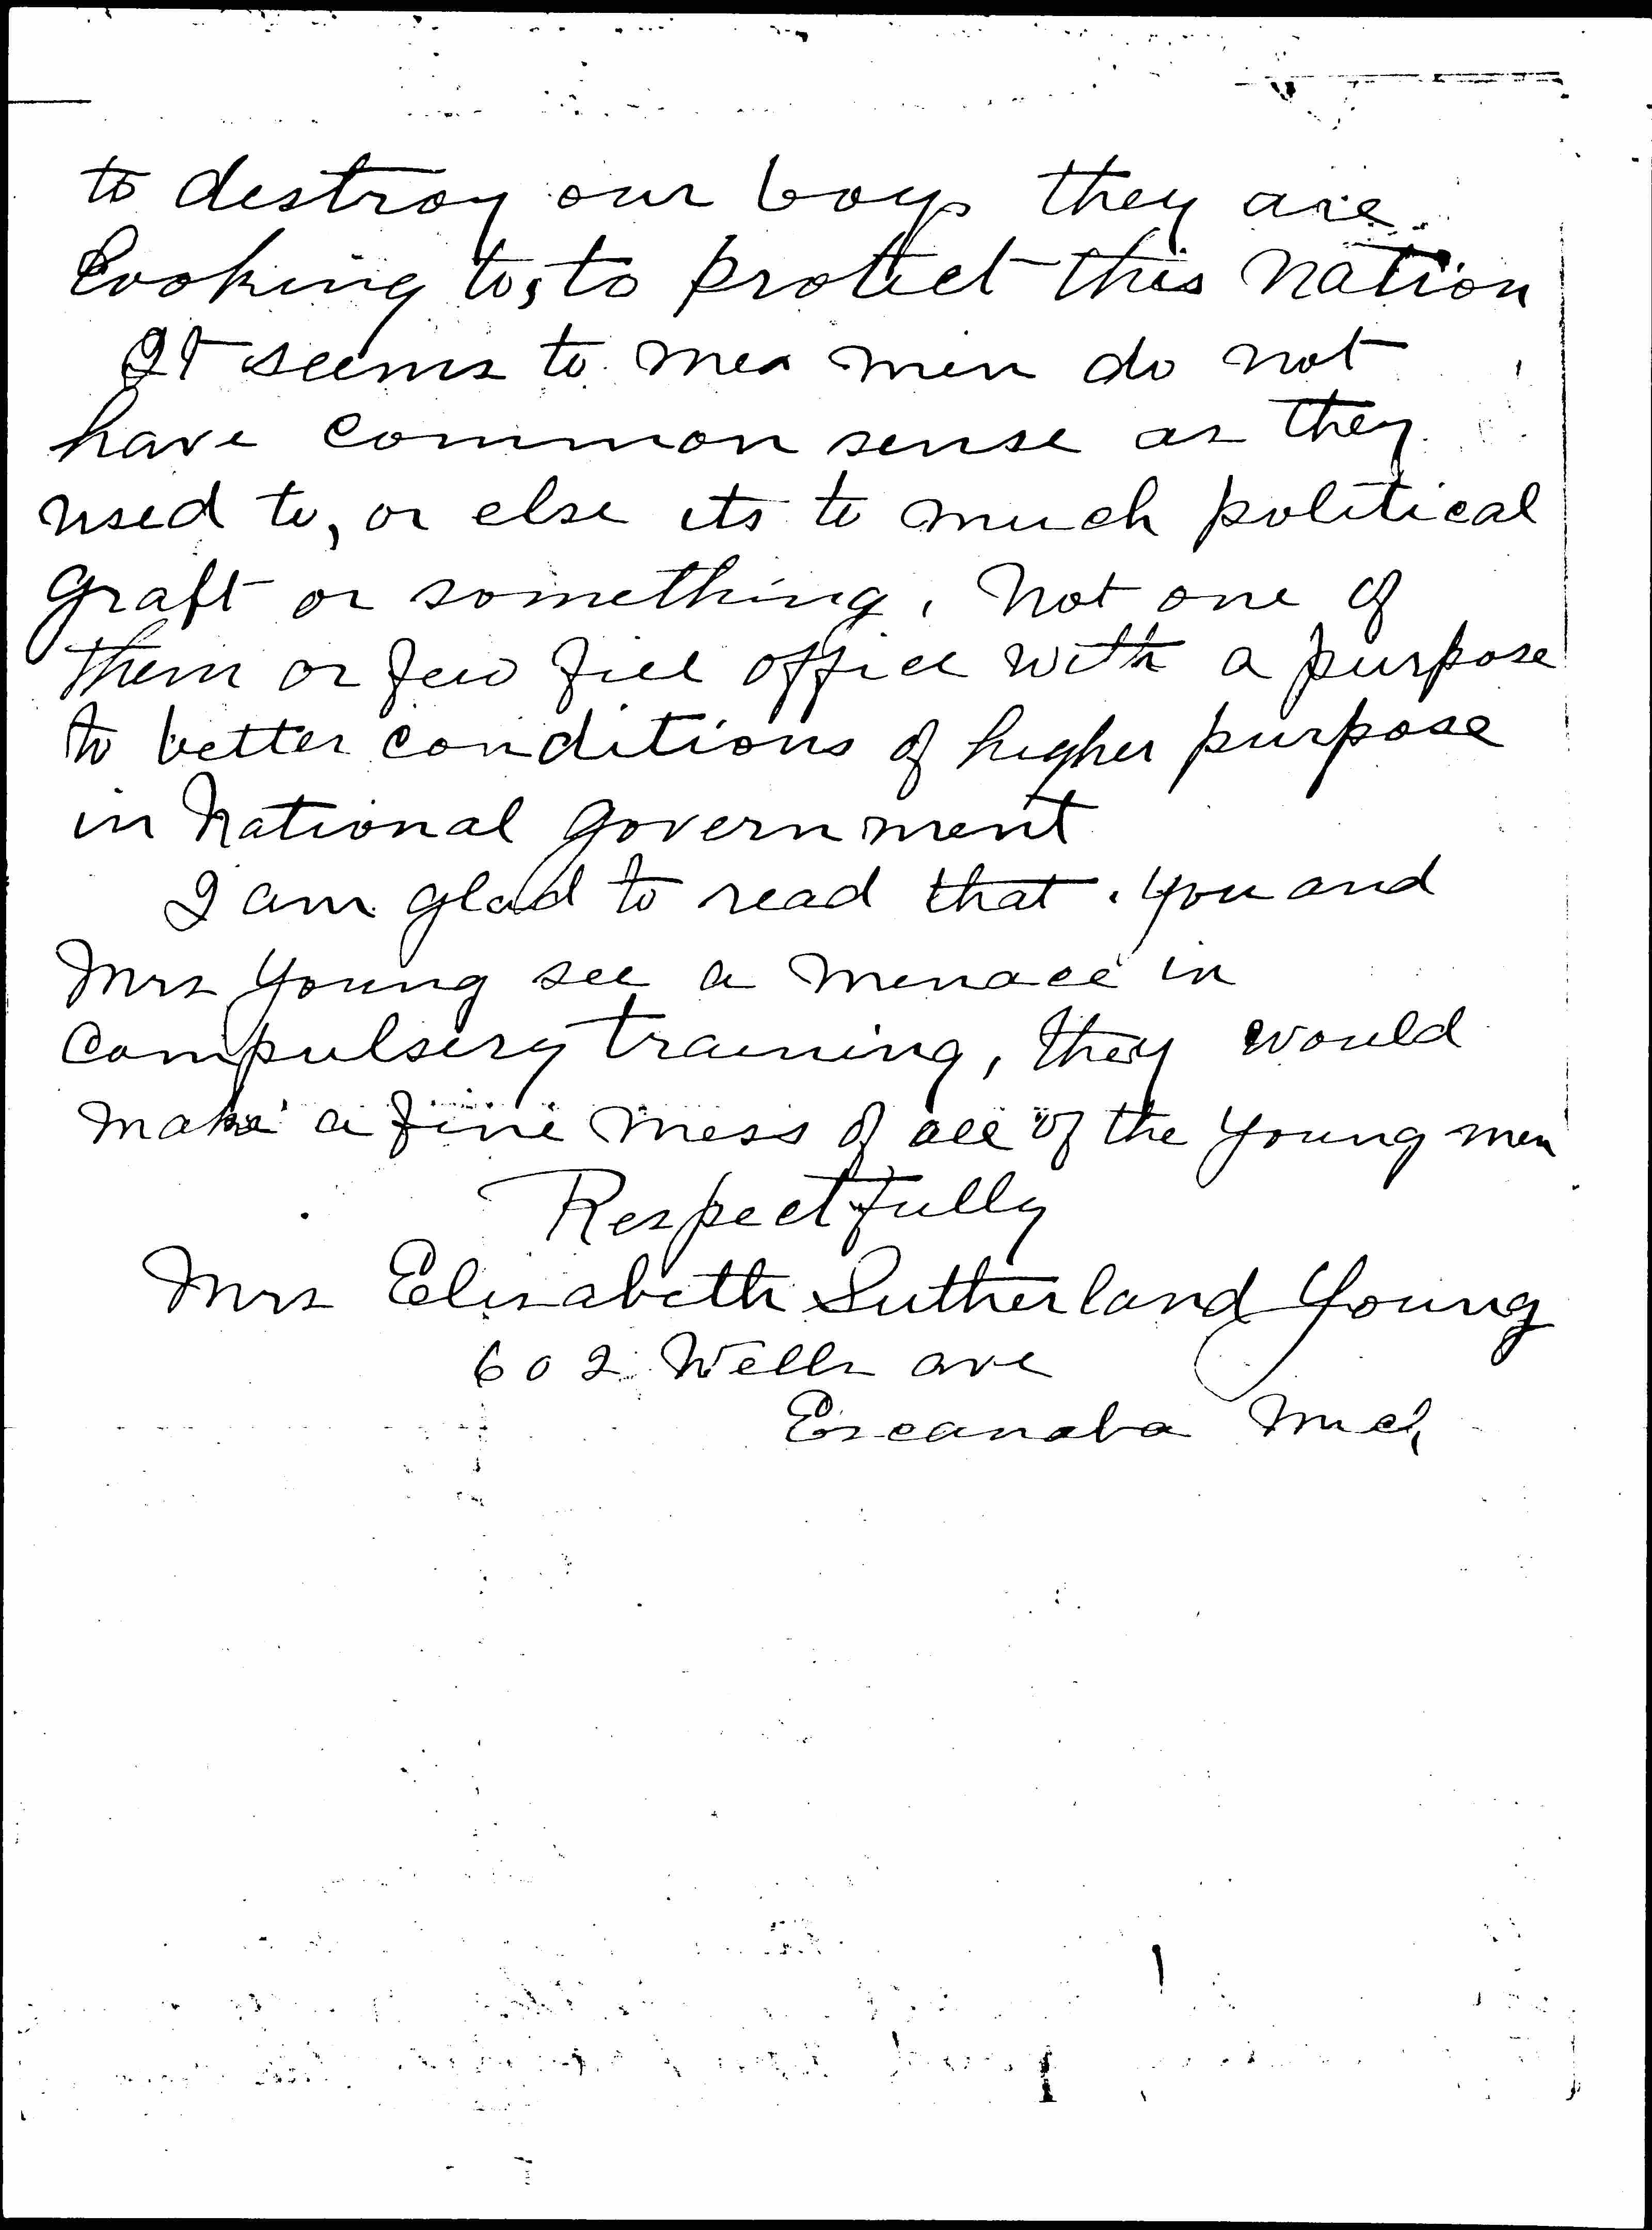 to destroy our boys they are
looking to, to protect this Nation
It seems to me men do not
have common sense as they
used to, or else its to much political
graft or something, not one of
them or few fill office with a purpose
to better conditions of higher purpose
in National government
I am glad to read that you and
Mrs Young see a menace in
Compulsery training, they would
make a fine mess of all of the young men
Respectfully
Mrs Elisabeth Sutherland Young
602 Wells ave
Escanaba Mich